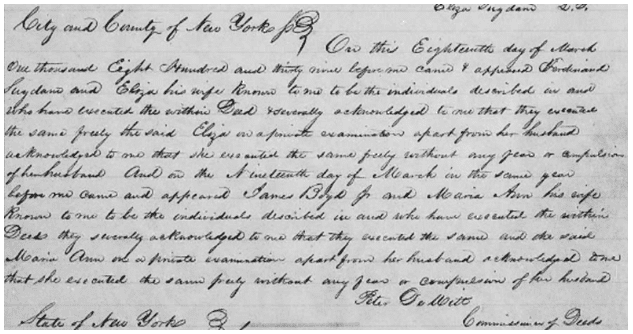 Eliza Suydam L.S.
City and County of New York ss
On this Eighteenth day of March
One thousand Eight Hundred and thirty nine before me came & appeared Ferdinand
Suydam and Eliza his wife known to me to be the individuals described in and
who have executed the within Deed & severally acknowledged to me that they executed
the same freely the said Eliza on a private examination apart from her husband
acknowledged to me that she executed the same freely without any fear or compulsion
of her husband And on the Nineteenth day of March in the same year
before me came and appeared James Boyd Jr and Maria Ann his wife
known to me to be the individuals described in and who have executed the within
Deeds they severally acknowledged to me that they executed the same and the said
Maria Ann on a private examination apart from her husband acknowledged to me
that she executed the same freely without any fear or compulsion of her husband
Peter DeWitt
State of New York Commissioner of Deeds